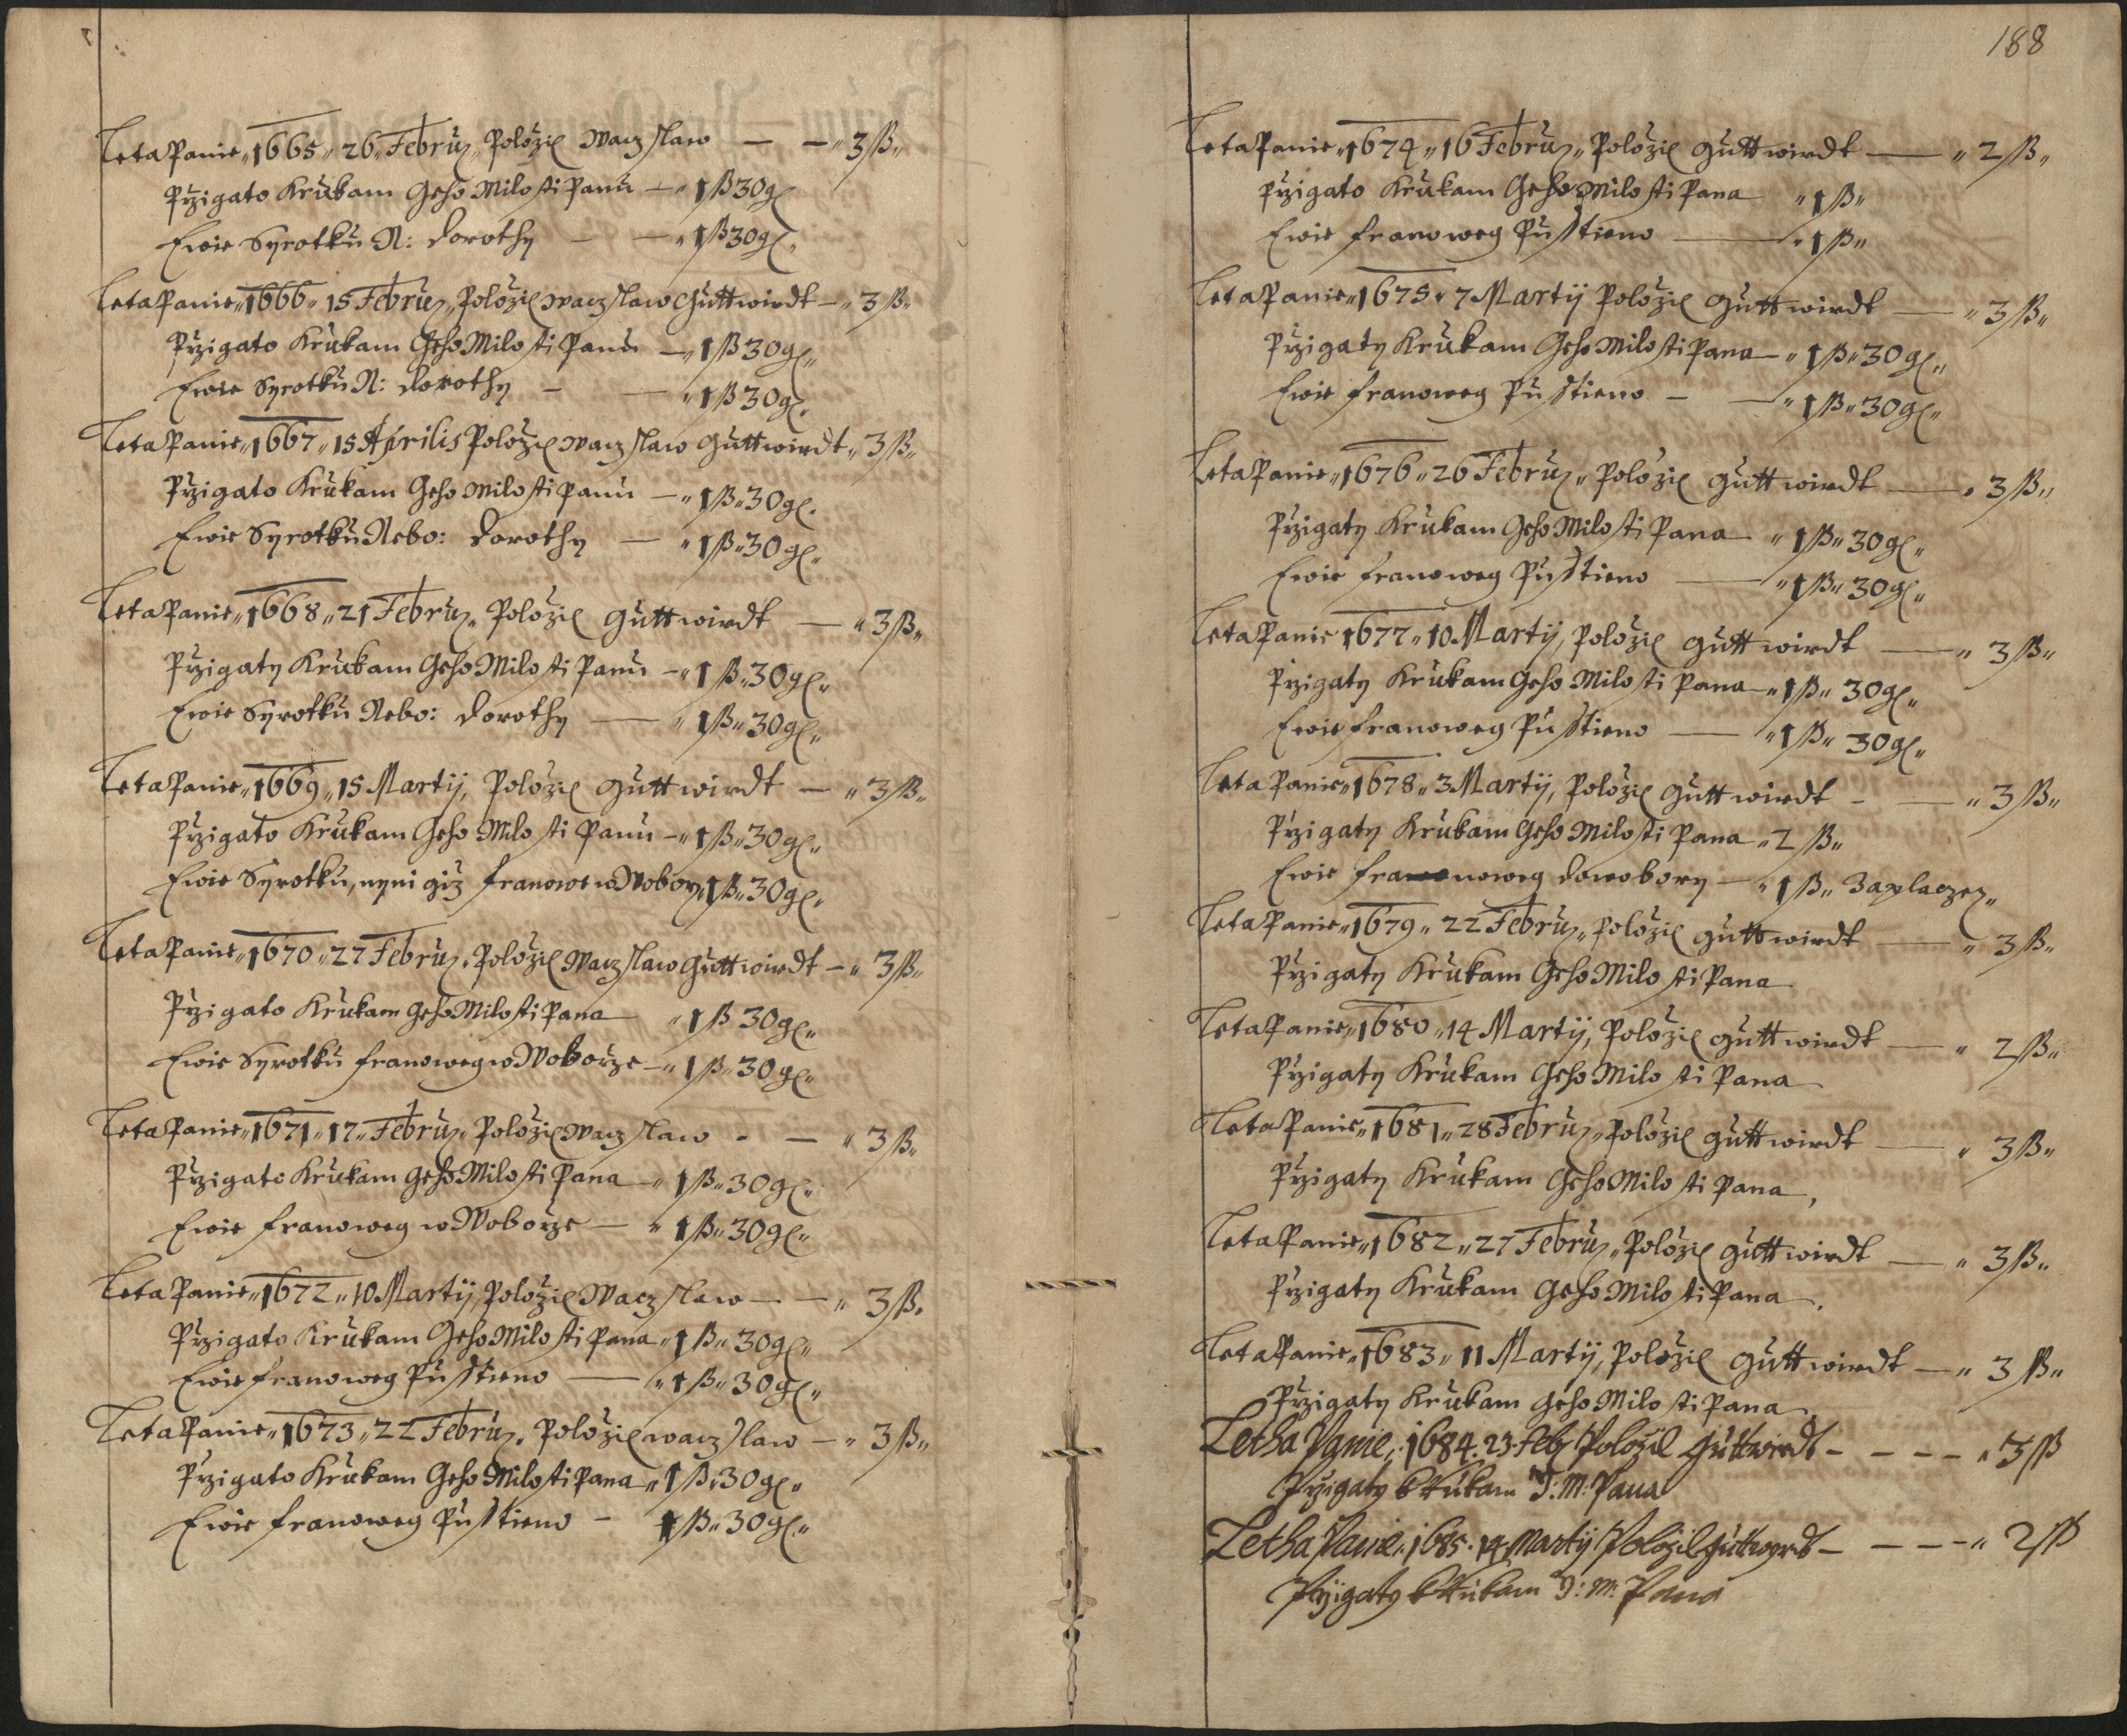 Leta Panie„1665„26„Februz„Položil Waczslaw — —„3ß„
Przigato Krukam Geho Milosti Panu —„1ß30gl
Ewie Syrotku N: Dorothy — —„1ß30gl„
Leta Panie„1666„15 Februz„Položil Waczslaw Guttwirdt —„3ß„
Przigato Krukam Geho Milosti Panu —„1ß30gl„
Ewie Syrotku N: Dorothy — —„1ß30gl„
Leta Panie„1667„15 Aprilis Položil Waczslaw Guttwirdt„3ß„
Przigato Krukam Geho Milosti Panu —„1ß„30gl„
Ewie Syrotku Nebo: Dorothy —„1ß„30gl„
Leta Panie„1668„21 Februz„Položil Guttwirdt —„3ß„
Przigaty Krukam Geho Milosti Panu —„1ß„30gl„
Ewie Syrotku Nebo: Dorothy —„1ß„30gl„
Leta Panie„1669„15 Martij, Položil Guttwirdt —„3ß„
Przigato Krukam Geho Milosti Panu —„1ß„30gl„
Ewie Syrotku, nyni giz Franowe w Wobory„1ß„30gl„
Leta Panie„1670„27 Februz„Položil Waczslaw Guttwirdt —„3ß„
Przigato Krukam Geho Milosti Pana „1ß30gl„
Ewie Syrotku Franoweg w Woborze —„1ß„30gl„
Leta Panie„1671„17„Februz„Položil Waczslaw - —„3ß„
Przigato Krukam Geho Milosti Pana —„1ß„30gl„
Ewie Franoweg w Woborze —„1ß„30gl„
Leta Panie„1672„10 Martij, Položil Waczslaw — —„3ß„
Przigato Krukam Geho Milosti Pana„1ß„30gl„
Ewie Franoweg Pustieno —„1ß„30gl„
Leta Panie„1673„22 Februz„Položil Waczslaw —„3ß„
Przigato Krukam Geho Milosti Pana„1ß„30gl„
Ewie Franoweg Pustieno — 1ß„30gl„
188
Leta Panie„1674„16 Februz„Položil Guttwirdt —„2ß„
Przigato Krukam Geho Milosti Pana „1ß„
Ewie Franoweg Pustieno —„1ß„
Leta Panie„1675„7 Martij Položil Guttwirdt —„3ß„
Przigaty Krukam Geho Milosti Pana —„1ß„30gl„
Ewie Franoweg Pustieno — —„1ß„30gl„
Leta Panie„1676„26 Februz„Položil Guttwirdt —„3ß„
Przigaty Krukam Geho Milosti Pana „1ß„30gl„
Ewie Franoweg Pustieno —„1ß„30gl„
Leta Panie 1677„10 Martij, Položil Guttwirdt —„3ß„
Przigaty Krukam Geho Milosti Pana —„1ß„30gl„
Ewie Franoweg Pustieno —„1ß„30gl„
Leta Panie„1678„3 Martij, Položil Guttwirdt - —„3ß„
Przigaty Krukam Geho Milosti Pana„2ß„
Ewie Franoweg Dowobory —„1ß„Zaplaczez„
Leta Panie„1679„22 Februz„Položil Guttwirdt —„3ß„
Przigaty Krukam Geho Milosti Pana
Leta Panie„1680„14 Martij, Položil Guttwirdt —„2ß„
Przigaty Krukam Geho Milosti Pana
Leta Panie„1681„28 Februz„Položil Guttwirdt —„3ß„
Przigaty Krukam Geho Milosti Pana,
Leta Panie„1682„27 Februz„Položil Guttwirdt —„3ß„
Przigaty Krukam Geho Milosti Pana,
Leta Panie„1683„11 Martij, Položil Guttwirdt —„3ß„
Przigaty Krukam Geho Milosti Pana
Letha Panie„1684.23.Feb Položil Guttwirdt - - - -„3ß
Przigaty k Rukam J: M: Pana
Letha Panie„1685.14.Martij Položil Guttwyrdt - - - -„2ß
Przigaty k Rukam J: M: Pana